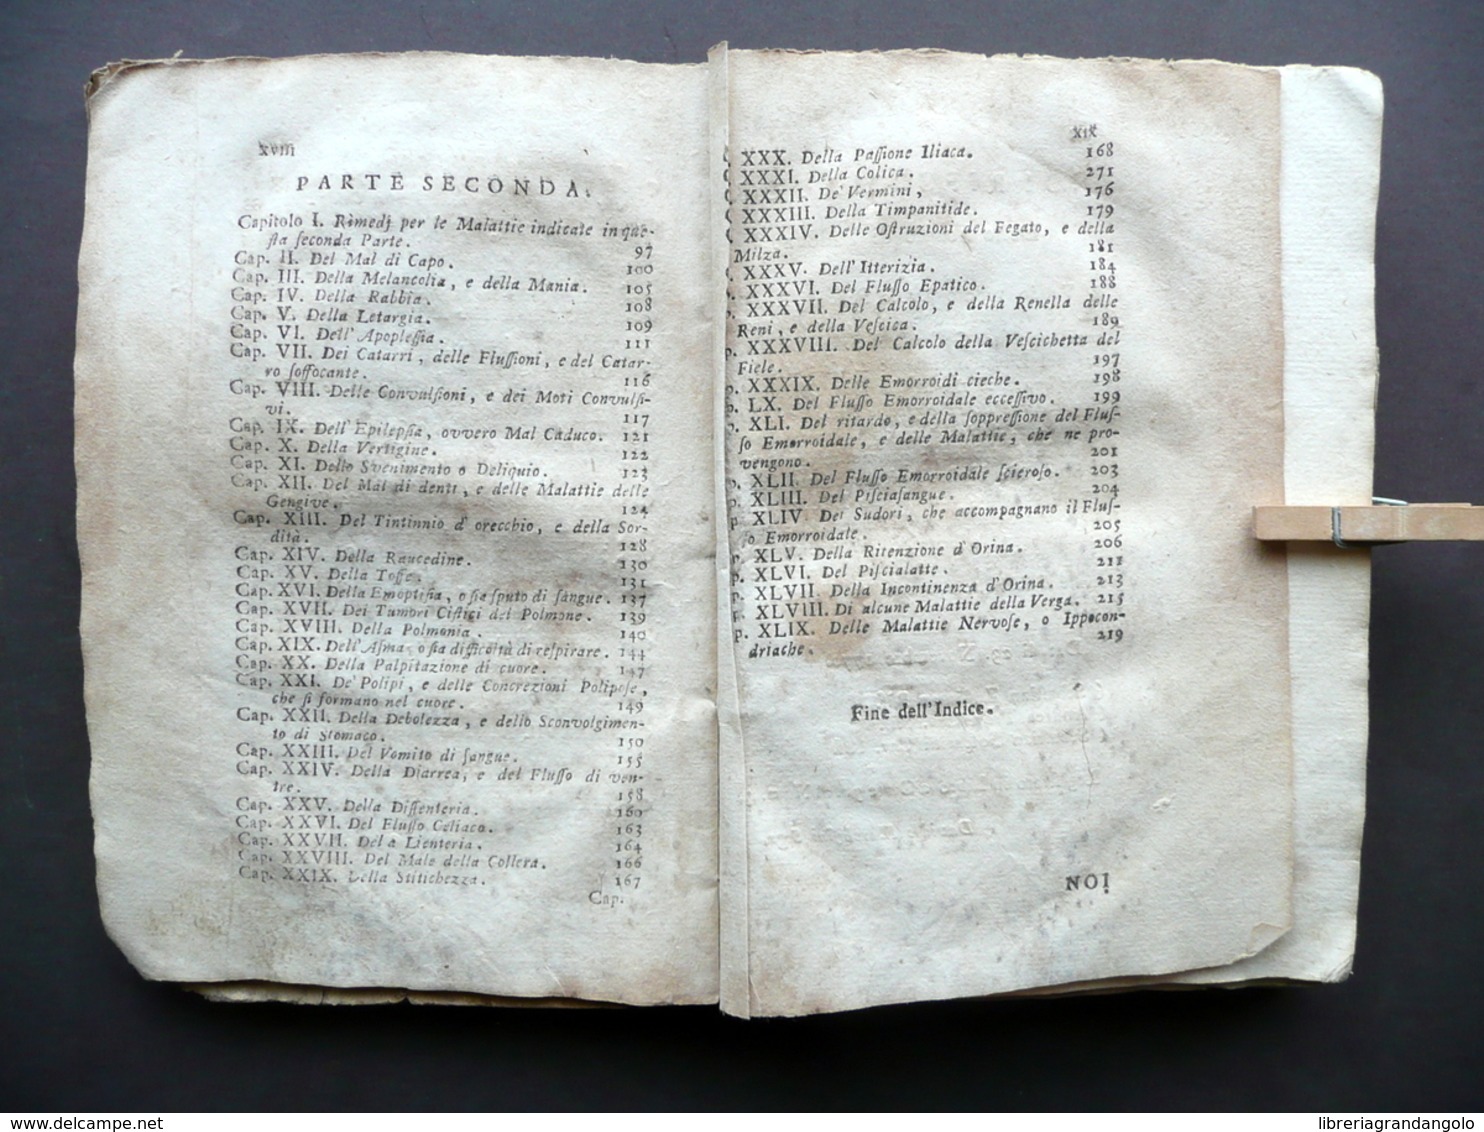 xviii
PARTE SECONDA.
Capitolo I. Rimedj per le Malattie indicate in que-
sta seconda Parte. 97
Cap. II. Del Mal di Capo. 100
Cap. III. Della Melancolia, e della Mania. 105
Cap. IV. Della Rabbia. 108
Cap. V. Della Letargia. 109
Cap. VI. Dell' Apoplessia. 111
Cap. VII. Dei Catarri, delle Flussioni, e del Catar-
ro soffocante. 116
Cap. VIII. Delle Convulsioni, e dei Moti Convulsi-
vi. 117
Cap. IX. Dell' Epilepsia, ovvero Mal Caduco. 121
Cap. X. Della Vertigine. 122
Cap. XI. Dello Svenimento o Deliquio. 123
Cap. XII. Del Mal di denti, e delle Malattie delle
Gengive. 124
Cap. XIII. Del Tintinnio d' orecchio, e della Sor-
dità. 128
Cap. XIV. Della Raucedine. 130
Cap. XV. Della Tosse. 131
Cap. XVI. Della Emoptisia, o sia sputo di sangue. 137
Cap. XVII. Dei Tumori Cistici del Polmone. 139
Cap. XVIII. Della Polmonia. 140
Cap. XIX. Dell' Asma, o sia difficoltà di respirare. 144
Cap. XX. Della Palpitazione di cuore. 147
Cap. XXI. De' Polipi, e delle Concrezioni Polipose,
che si formano nel cuore. 149
Cap. XXII. Della Debolezza, e dello Sconvolgimen-
to di Stomaco. 150
Cap. XXIII. Del Vomito di sangue. 155
Cap. XXIV. Della Diarrea, e del Flusso di ven-
tre. 158
Cap. XXV. Della Dissenteria. 160
Cap. XXVI. Del Flusso Celiaco. 163
Cap. XXVII. Del a Lienteria. 164
Cap. XXVIII. Del Male della Collera. 166
Cap. XXIX. Della Stitichezza. 167
Cap.
xix
XXX. Della Passione Iliaca. 168
XXXI. Della Colica. 271
XXXII. De' Vermini, 176
XXXIII. Della Timpanitide. 179
XXXIV. Delle Ostruzioni del Fegato, e della
Milza. 181
XXXV. Dell' Itterizia. 184
XXXVI. Del Flusso Epatico. 188
XXXVII. Del Calcolo, e della Renella delle
Reni, e della Vescica. 189
p. XXXVIII. Del Calcolo della Vescichetta del
Fiele. 197
p. XXXIX. Delle Emorroidi cieche. 198
p. LX. Del Flusso Emorroidale eccessivo. 199
p. XLI. Del ritardo, e della soppressione del Flus-
so Emorroidale, e delle Malattie, che ne pro-
vengono. 201
p. XLII. Del Flusso Emorroidale scieroso. 203
p. XLIII. Del Pisciasangue. 204
p. XLIV Dei Sudori, che accompagnano il Flus-
so Emorroidale. 205
p. XLV. Della Ritenzione d' Orina. 206
p. XLVI. Del Piscialatte. 211
p. XLVII. Della Incontinenza d' Orina. 213
p. XLVIII. Di alcune Malattie della Verga. 215
p. XLIX. Delle Malattie Nervose, o Ippocon-
driache. 219
Fine dell' Indice.
ION
libreriagrandangolo